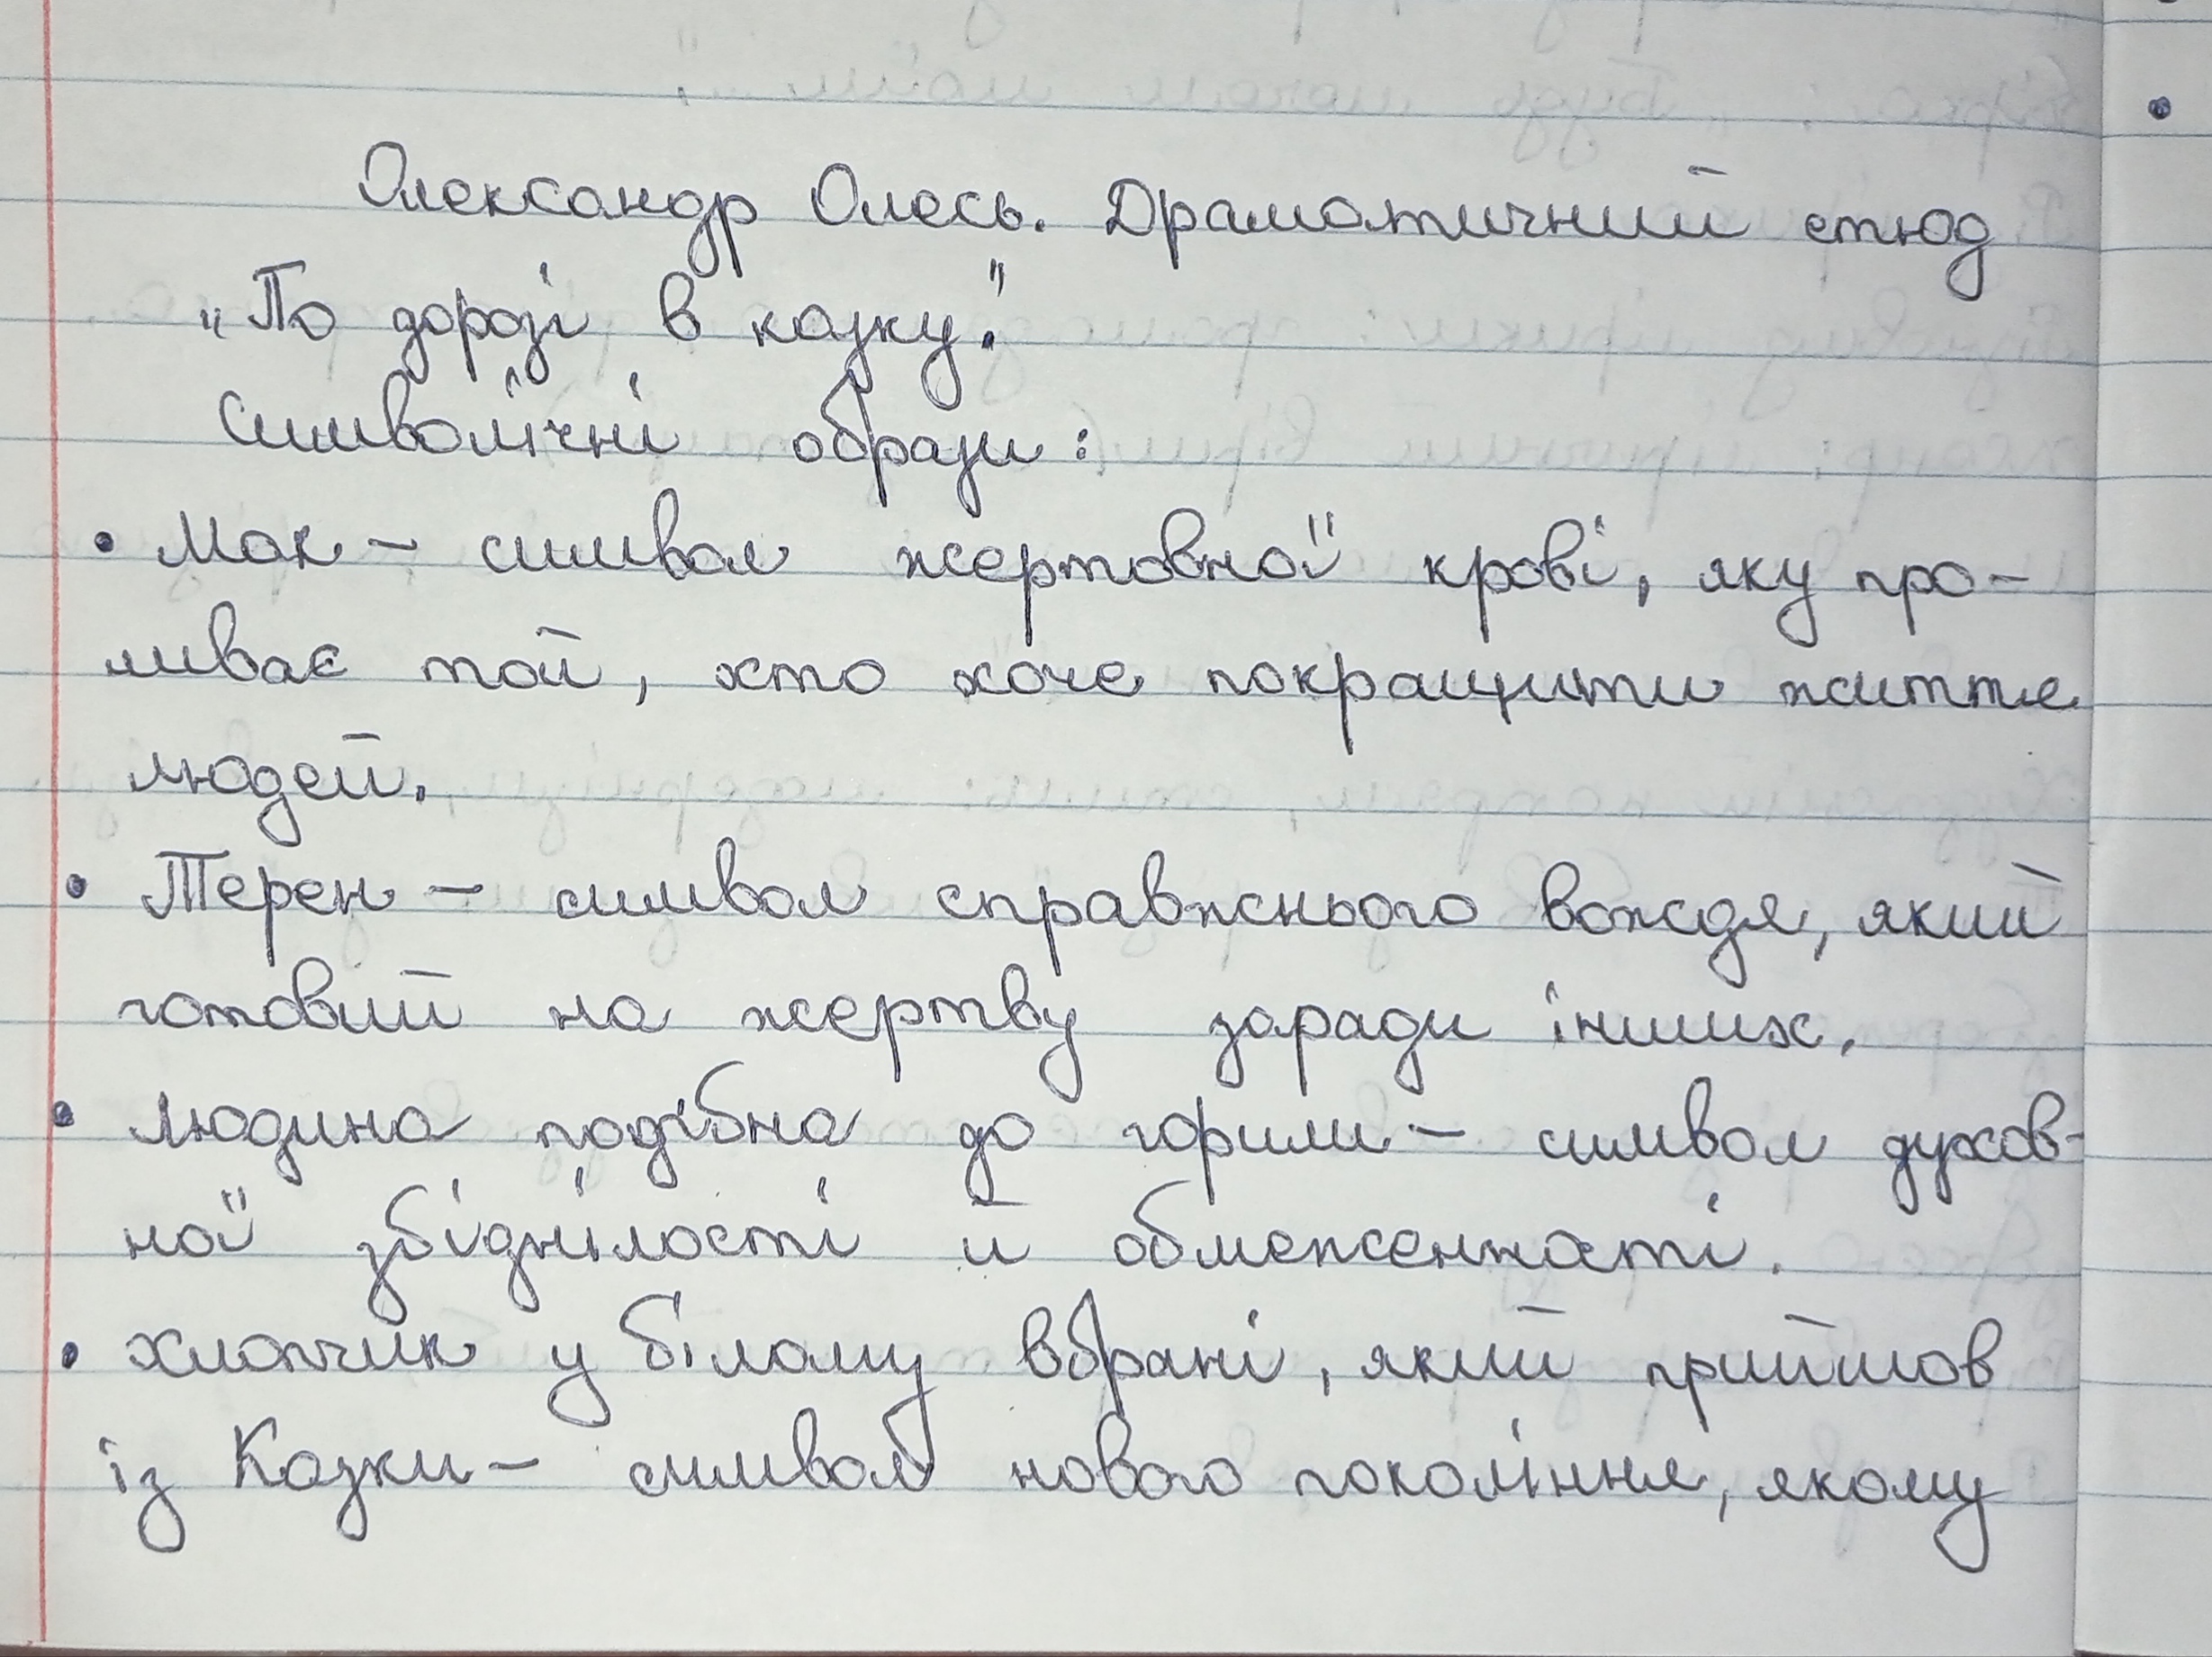 Олександр Олесь. Драматичний етюд
„По дорозі в казку."
Символічні образи:
• Мак – символ жертовної крові, яку про-
ливає той, хто хоче покращити життя
людей.
• Терен – символ справжнього вождя, який
готовий на жертву заради інших.
• людина подібна до горили – символ духов-
ної збіднілості й обмеженності.
• хлопчик у білому вбрані, який прийшов
із Казки – символ нового покоління, якому